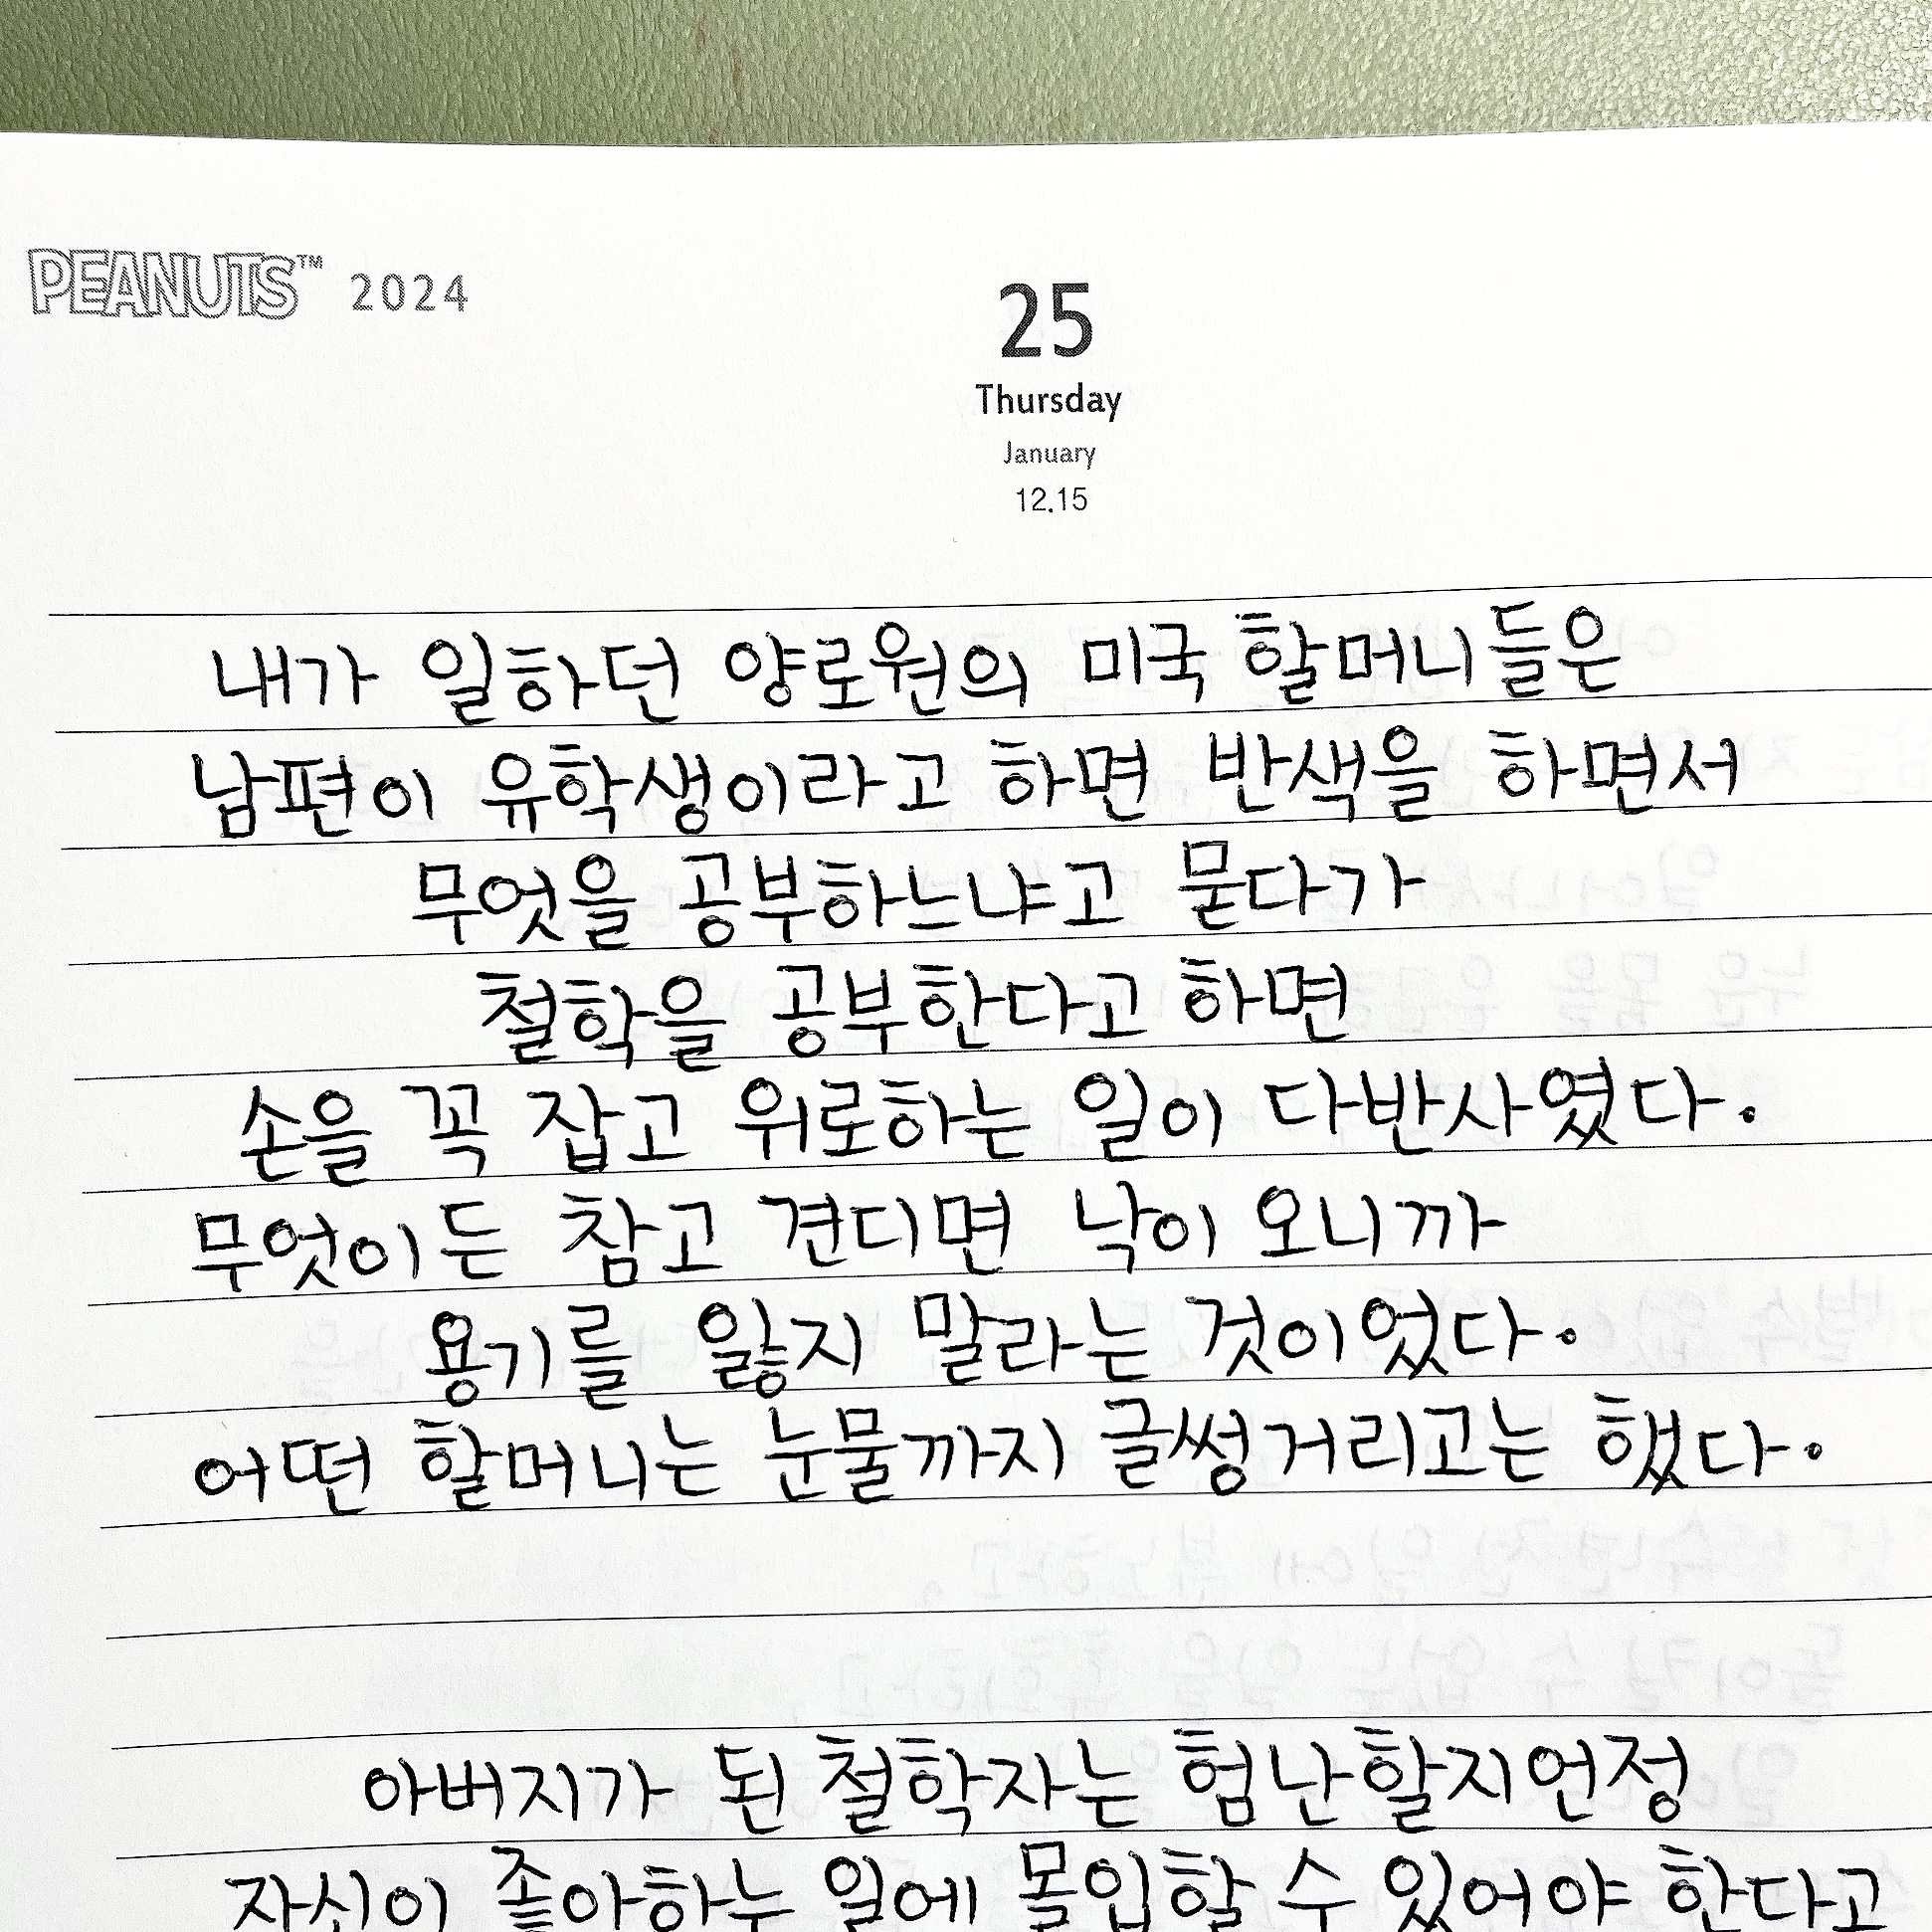 PEANUTS™ 2024
25
Thursday
January
12.15
내가 일하던 양로원의 미국 할머니들은
남편이 유학생이라고 하면 반색을 하면서
무엇을 공부하느냐고 묻다가
철학을 공부한다고 하면
손을 꼭 잡고 위로하는 일이 다반사였다.
무엇이든 참고 견디면 낙이 오니까
용기를 잃지 말라는 것이었다.
어떤 할머니는 눈물까지 글썽거리고는 했다.
아버지가 된 철학자는 험난할지언정
자신이 좋아하는 일에 몰입할 수 있어야 한다고